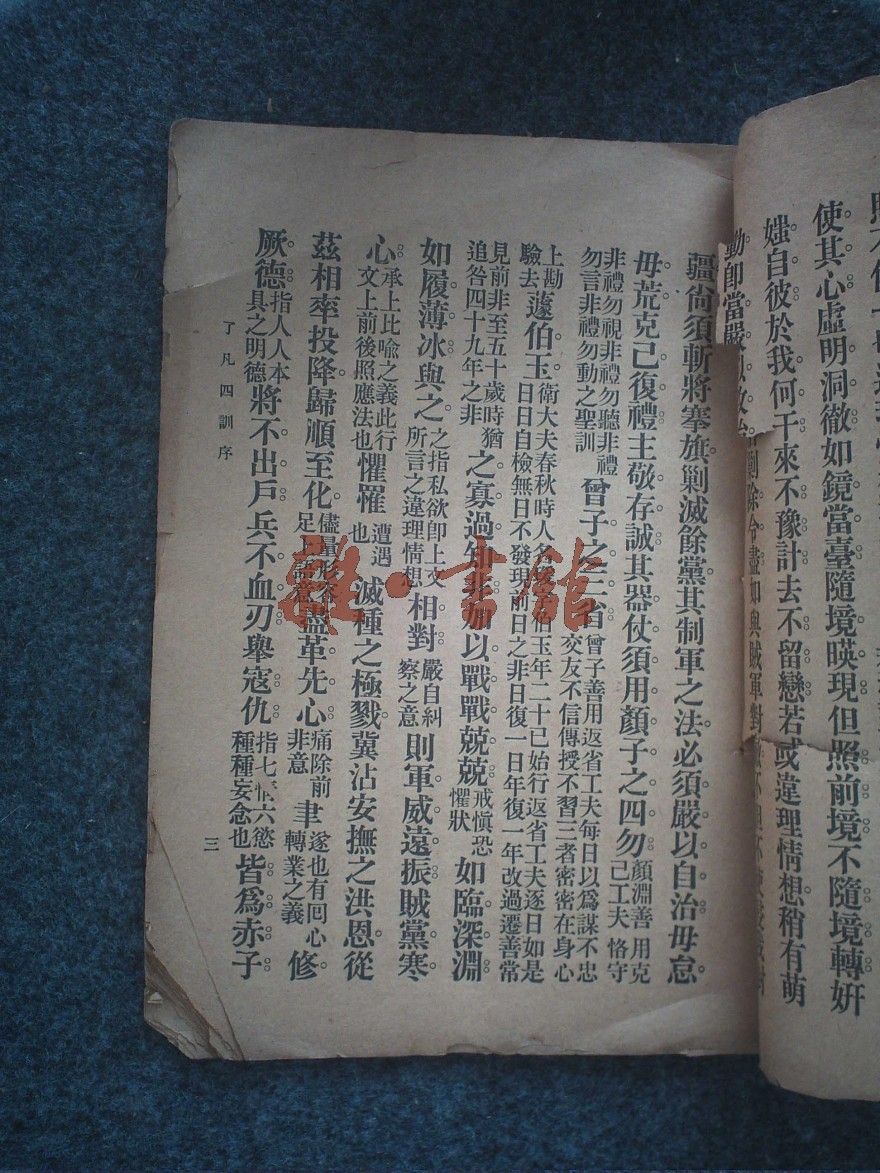 使其心虛明洞徹如鏡當臺隨境暎現但照前境不隨境轉姸
媸自彼於我何干來不豫計去不留戀若或違理情想稍有萌
動卽當嚴剿除令盡如與賊軍對
疆尙須斬將搴旗剿滅餘黨其制軍之法必須嚴以自治毋怠
毋荒克己復禮主敬存誠其器仗須用顏子之四勿顏淵善用克己工夫恪守
非禮勿視非禮勿聽非禮勿言非禮勿動之聖訓曾子之三省曾子善用返省工夫每日以爲謀不忠交友不信傳授不習三者密密在身心
上勘驗去蘧伯玉衛大夫春秋時人名瑗字伯玉年二十已始行返省工夫逐日如是日日自檢無日不發現前日之非日復一日年復一年改過遷善常
見前非至五十歲時猶追咎四十九年之非之寡過知非加以戰戰兢兢戒愼恐懼狀如臨深淵
如履薄冰與之之指私欲卽上文所言之違理情想相對嚴自糾察之意則軍威遠振賊黨寒
心承上比喩之義此行文上前後照應法也懼罹遭遇也滅種之極戮冀沾安撫之洪恩從
茲相率投降歸順至化儘量形容足上語意盡革先心痛除前非意聿遂也有囘心轉業之義修
厥德指人人本具之明德將不出戶兵不血刃舉寇仇指七情六慾種種妄念也皆爲赤子
了凡四訓序
三
雜·書館